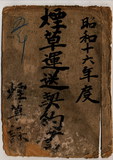 昭和十六年度
煙草運送契約書
煙草課